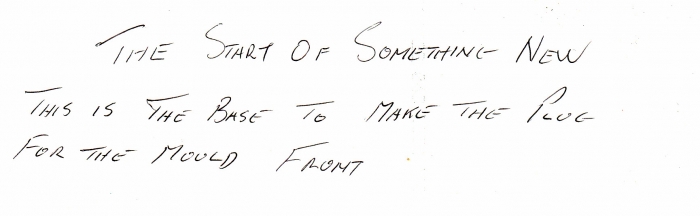 The Start Of Something New
This is The Base To Make The Plug
For The Mould Front